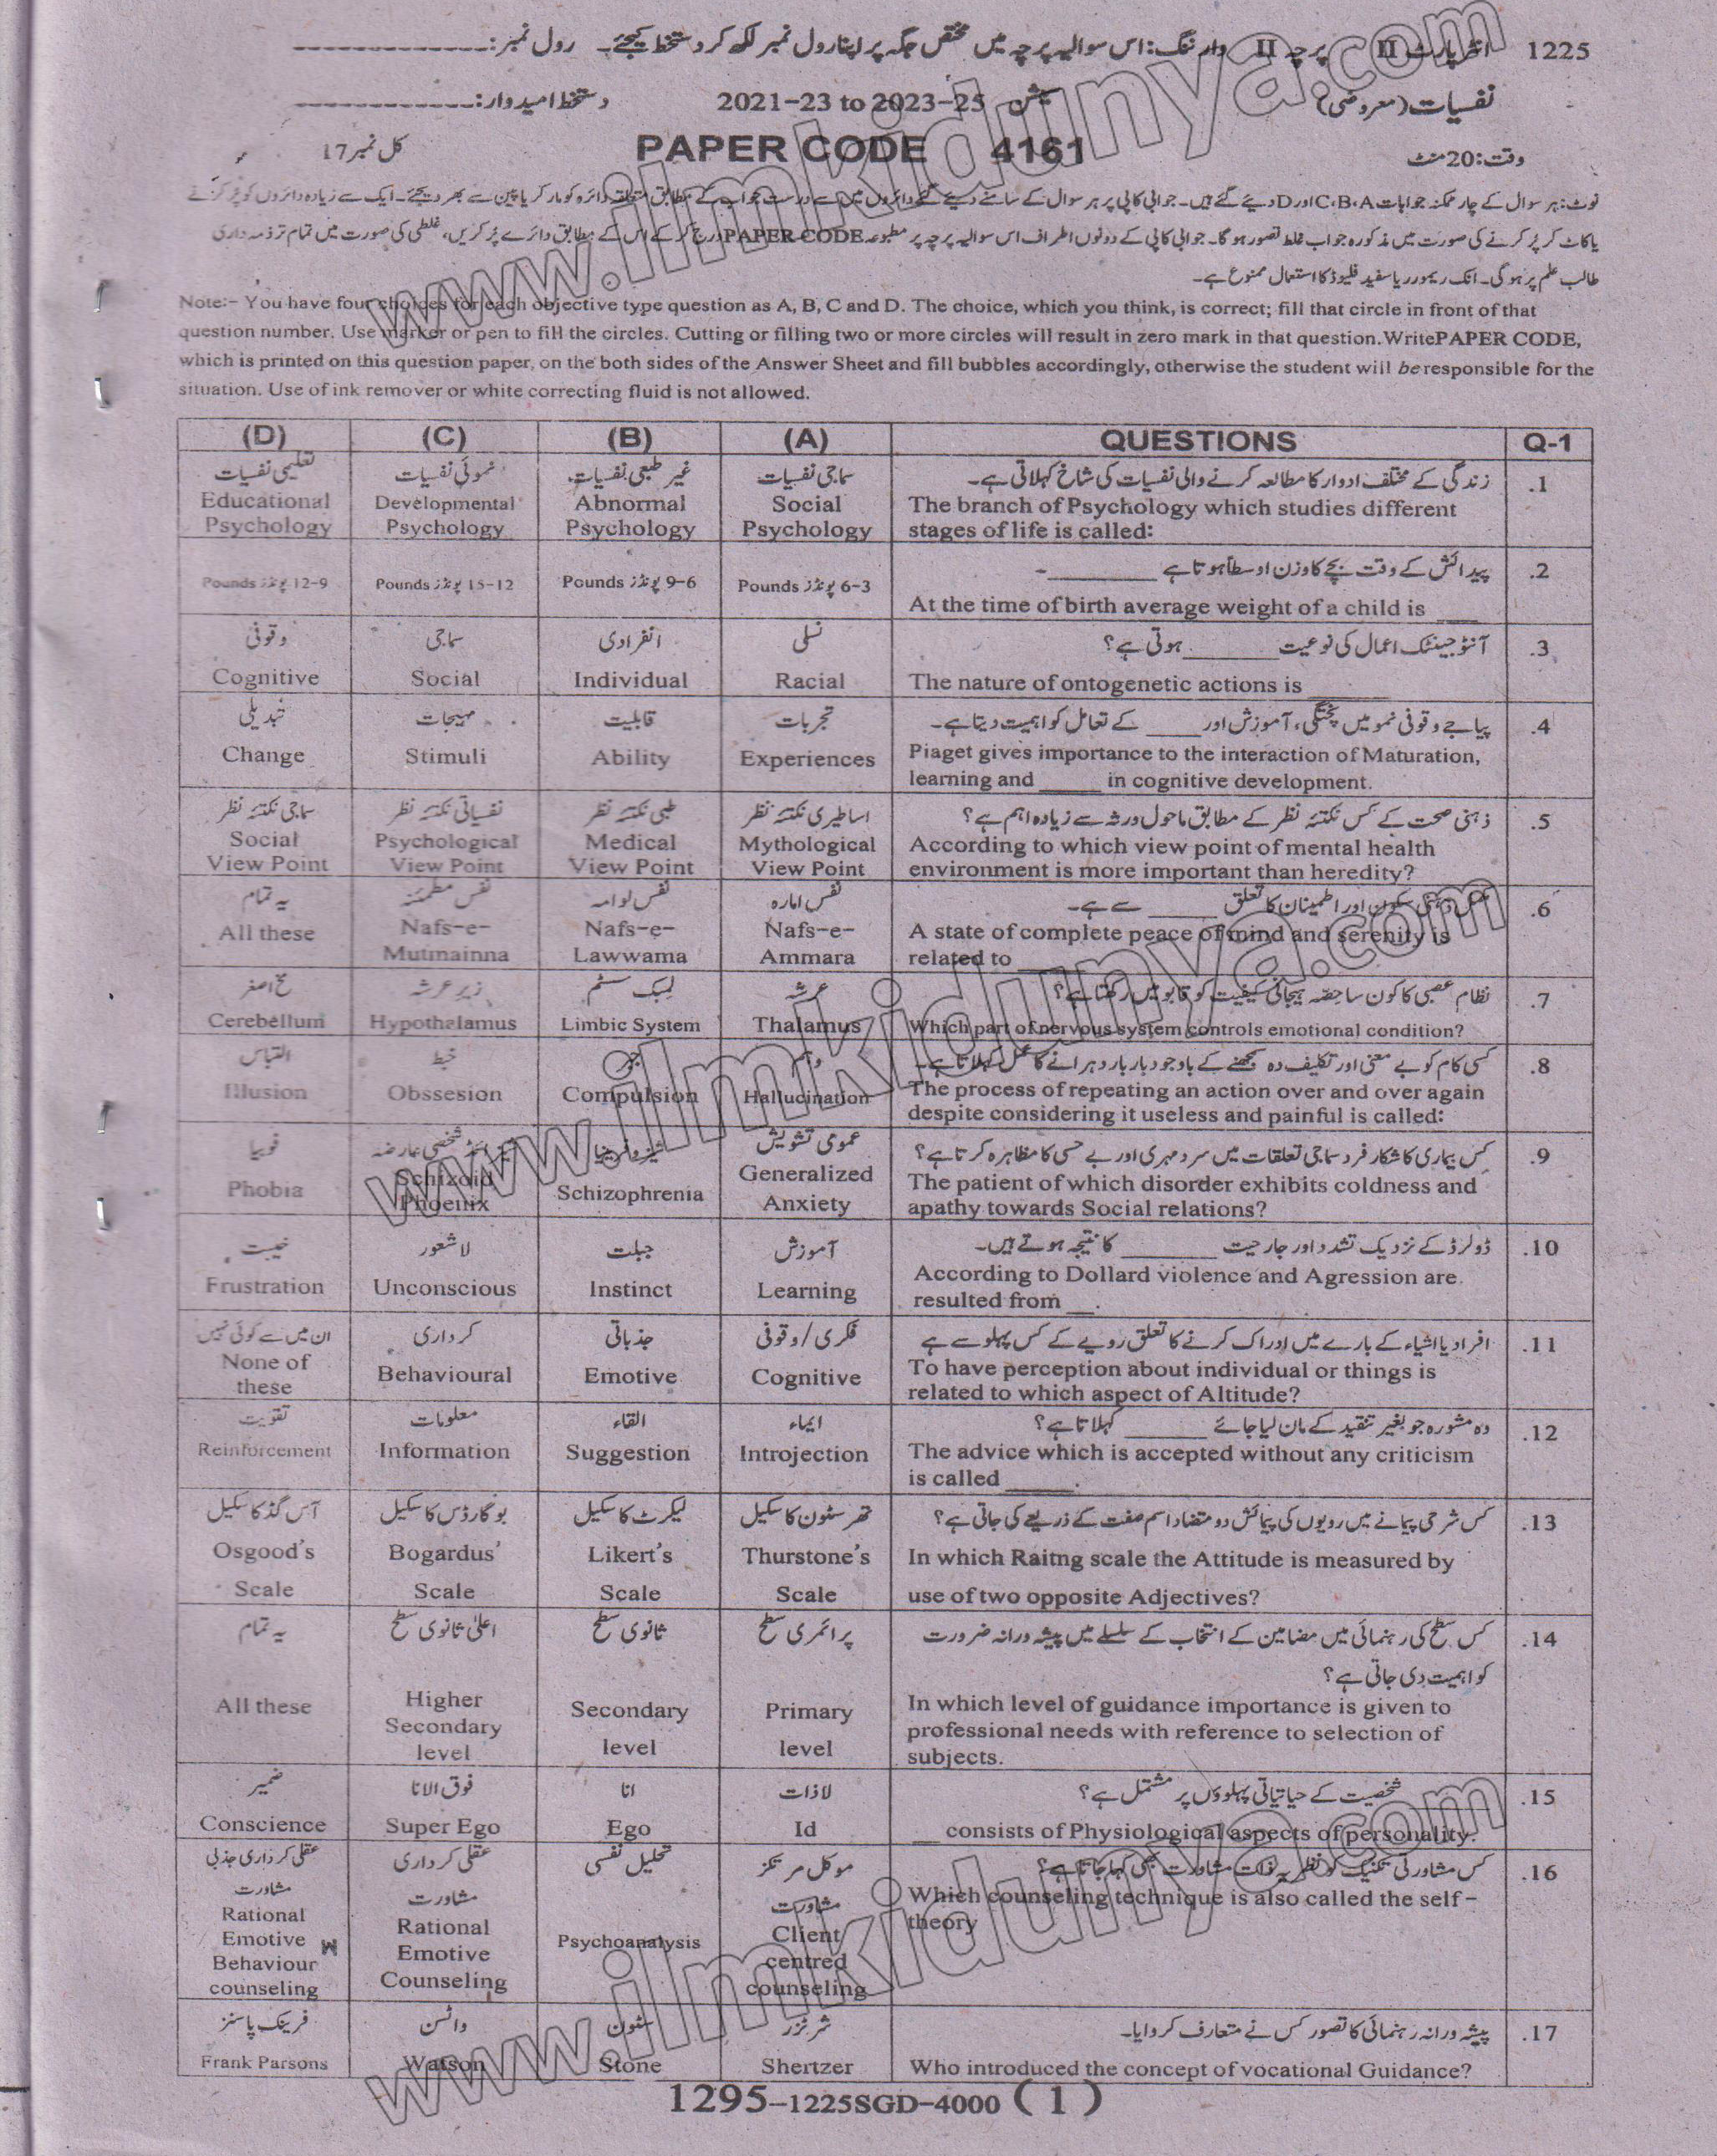 1225 انٹرپارٹ II پرچہ II وارننگ: اس سوالیہ پرچہ میں مختص جگہ پر اپنا رول نمبر لکھ کر دستخط کیجئے۔ رول نمبر: ____________
نفسیات (معروضی) سیشن 2021-23 to 2023-25 دستخط امیدوار: ____________
وقت: 20 منٹ PAPER CODE 4161 کل نمبر 17
نوٹ: ہر سوال کے چار ممکنہ جوابات C،B،A اور D دیئے گئے ہیں۔ جوابی کاپی پر ہر سوال کے سامنے دیئے گئے دائروں میں سے درست جواب کے مطابق متعلقہ دائرہ کو مارکر یا پین سے بھر دیجئے۔ ایک سے زیادہ دائروں کو پُر کرنے
یا کاٹ کر پُر کرنے کی صورت میں مذکورہ جواب غلط تصور ہوگا۔ جوابی کاپی کے دونوں اطراف اس سوالیہ پرچہ پر مطبوعہ PAPER CODE درج کر کے اس کے مطابق دائرے پُر کریں، غلطی کی صورت میں تمام تر ذمہ داری
طالب علم پر ہوگی۔ انک ریموور یا سفید فلیوڈ کا استعمال ممنوع ہے۔
Note:- You have four choices for each objective type question as A, B, C and D. The choice, which you think, is correct; fill that circle in front of that
question number. Use marker or pen to fill the circles. Cutting or filling two or more circles will result in zero mark in that question.WritePAPER CODE,
which is printed on this question paper, on the both sides of the Answer Sheet and fill bubbles accordingly, otherwise the student will be responsible for the
situation. Use of ink remover or white correcting fluid is not allowed.
(D) (C) (B) (A) QUESTIONS Q-1
تعلیمی نفسیات نموئی نفسیات غیر طبعی نفسیات سماجی نفسیات زندگی کے مختلف ادوار کا مطالعہ کرنے والی نفسیات کی شاخ کہلاتی ہے۔ .1
Educational Developmental Abnormal Social The branch of Psychology which studies different
Psychology Psychology Psychology Psychology stages of life is called:
پیدائش کے وقت بچے کا وزن اوسطاً ہوتا ہے ________۔ .2
Pounds پونڈز 12-9 Pounds پونڈز 15-12 Pounds پونڈز 9-6 Pounds پونڈز 6-3
At the time of birth average weight of a child is ___
وقوفی سماجی انفرادی نسلی آنٹوجینٹک اعمال کی نوعیت ______ ہوتی ہے؟ .3
Cognitive Social Individual Racial The nature of ontogenetic actions is ______
تبدیلی مہیجات قابلیت تجربات پیاجے وقوفی نمو میں پختگی، آموزش اور ____ کے تعامل کو اہمیت دیتا ہے۔ .4
Change Stimuli Ability Experiences Piaget gives importance to the interaction of Maturation,
learning and _____ in cognitive development.
سماجی نکتہٴ نظر نفسیاتی نکتہٴ نظر طبی نکتہٴ نظر اساطیری نکتہٴ نظر ذہنی صحت کے کس نکتہٴ نظر کے مطابق ماحول ورثہ سے زیادہ اہم ہے؟ .5
Social Psychological Medical Mythological According to which view point of mental health
View Point View Point View Point View Point environment is more important than heredity?
یہ تمام نفس مطمئنہ نفس لوامہ نفس امارہ مکمل ذہنی سکون اور اطمینان کا تعلق _____ سے ہے۔ .6
All these Nafs-e- Nafs-e- Nafs-e- A state of complete peace of mind and serenity is
Mutmainna Lawwama Ammara related to
مخ اصغر زیر عرشہ لمبک سسٹم عرشہ نظام عصبی کا کون سا حصّہ ہیجانی کیفیت کو قابو میں رکھتا ہے؟ .7
Cerebellum Hypothalamus Limbic System Thalamus Which part of nervous system controls emotional condition?
التباس خبط جبر کسی کام کو بے معنی اور تکلیف دہ سمجھنے کے باوجود بار بار دہرانے کا عمل کہلاتا ہے۔ .8
Illusion Obssesion Compulsion Hallucination The process of repeating an action over and over again
despite considering it useless and painful is called:
فوبیا شخصی عارضہ شیزوفرینیا عمومی تشویش کس بیماری کا شکار فرد سماجی تعلقات میں سرد مہری اور بے حسی کا مظاہرہ کرتا ہے؟ .9
Phobia Schizoid Phoenix Schizophrenia Generalized Anxiety The patient of which disorder exhibits coldness and
apathy towards Social relations?
لاشعور جبلت آموزش ڈولرڈ کے نزدیک تشدد اور جارحیت ________ کا نتیجہ ہوتے ہیں۔ .10
Frustration Unconscious Instinct Learning According to Dollard violence and Agression are
resulted from __.
ان میں سے کوئی نہیں کرداری جذباتی فکری/وقوفی افراد یا اشیاء کے بارے میں ادراک کرنے کا تعلق رویے کے کس پہلو سے ہے .11
None of these Behavioural Emotive Cognitive To have perception about individual or things is
related to which aspect of Altitude?
تقویت معلومات القاء ایماء وہ مشورہ جو بغیر تنقید کے مان لیا جائے ______ کہلاتا ہے؟ .12
Reinforcement Information Suggestion Introjection The advice which is accepted without any criticism
is called _____.
آس گڈ کا سکیل بوگارڈس کا سکیل لیکرٹ کا سکیل تھرسٹون کا سکیل کس شرحی پیمانے میں رویوں کی پیمائش دو متضاد اسم صفت کے ذریعے کی جاتی ہے؟ .13
Osgood's Bogardus' Likert's Thurstone's In which Raitng scale the Attitude is measured by
Scale Scale Scale Scale use of two opposite Adjectives?
یہ تمام اعلیٰ ثانوی سطح ثانوی سطح پرائمری سطح کس سطح کی رہنمائی میں مضامین کے انتخاب کے سلسلے میں پیشہ ورانہ ضرورت .14
کو اہمیت دی جاتی ہے؟
All these Higher Secondary level Secondary level Primary level In which level of guidance importance is given to
professional needs with reference to selection of
subjects.
ضمیر فوق الانا انا لاذات شخصیت کے حیاتیاتی پہلوؤں پر مشتمل ہے؟ .15
Conscience Super Ego Ego Id __ consists of Physiological aspects of personality.
عقلی کرداری جذبی مشاورت عقلی کرداری مشاورت تحلیل نفسی موکل مرتکز مشاورت کس مشاورتی تکنیک کو نظریہ ذات مشاورت بھی کہا جاتا ہے؟ .16
Rational Emotive Behaviour counseling Rational Emotive Counseling Psychoanalysis Client centred counseling Which counseling technique is also called the self-
theory
فرینک پاسنز واٹسن سٹون شرٹزر پیشہ ورانہ رہنمائی کا تصور کس نے متعارف کروایا۔ .17
Frank Parsons Watson Stone Shertzer Who introduced the concept of vocational Guidance?
1295-1225SGD-4000 (1)
www.ilmkidunya.com
www.ilmkidunya.com
www.ilmkidunya.com